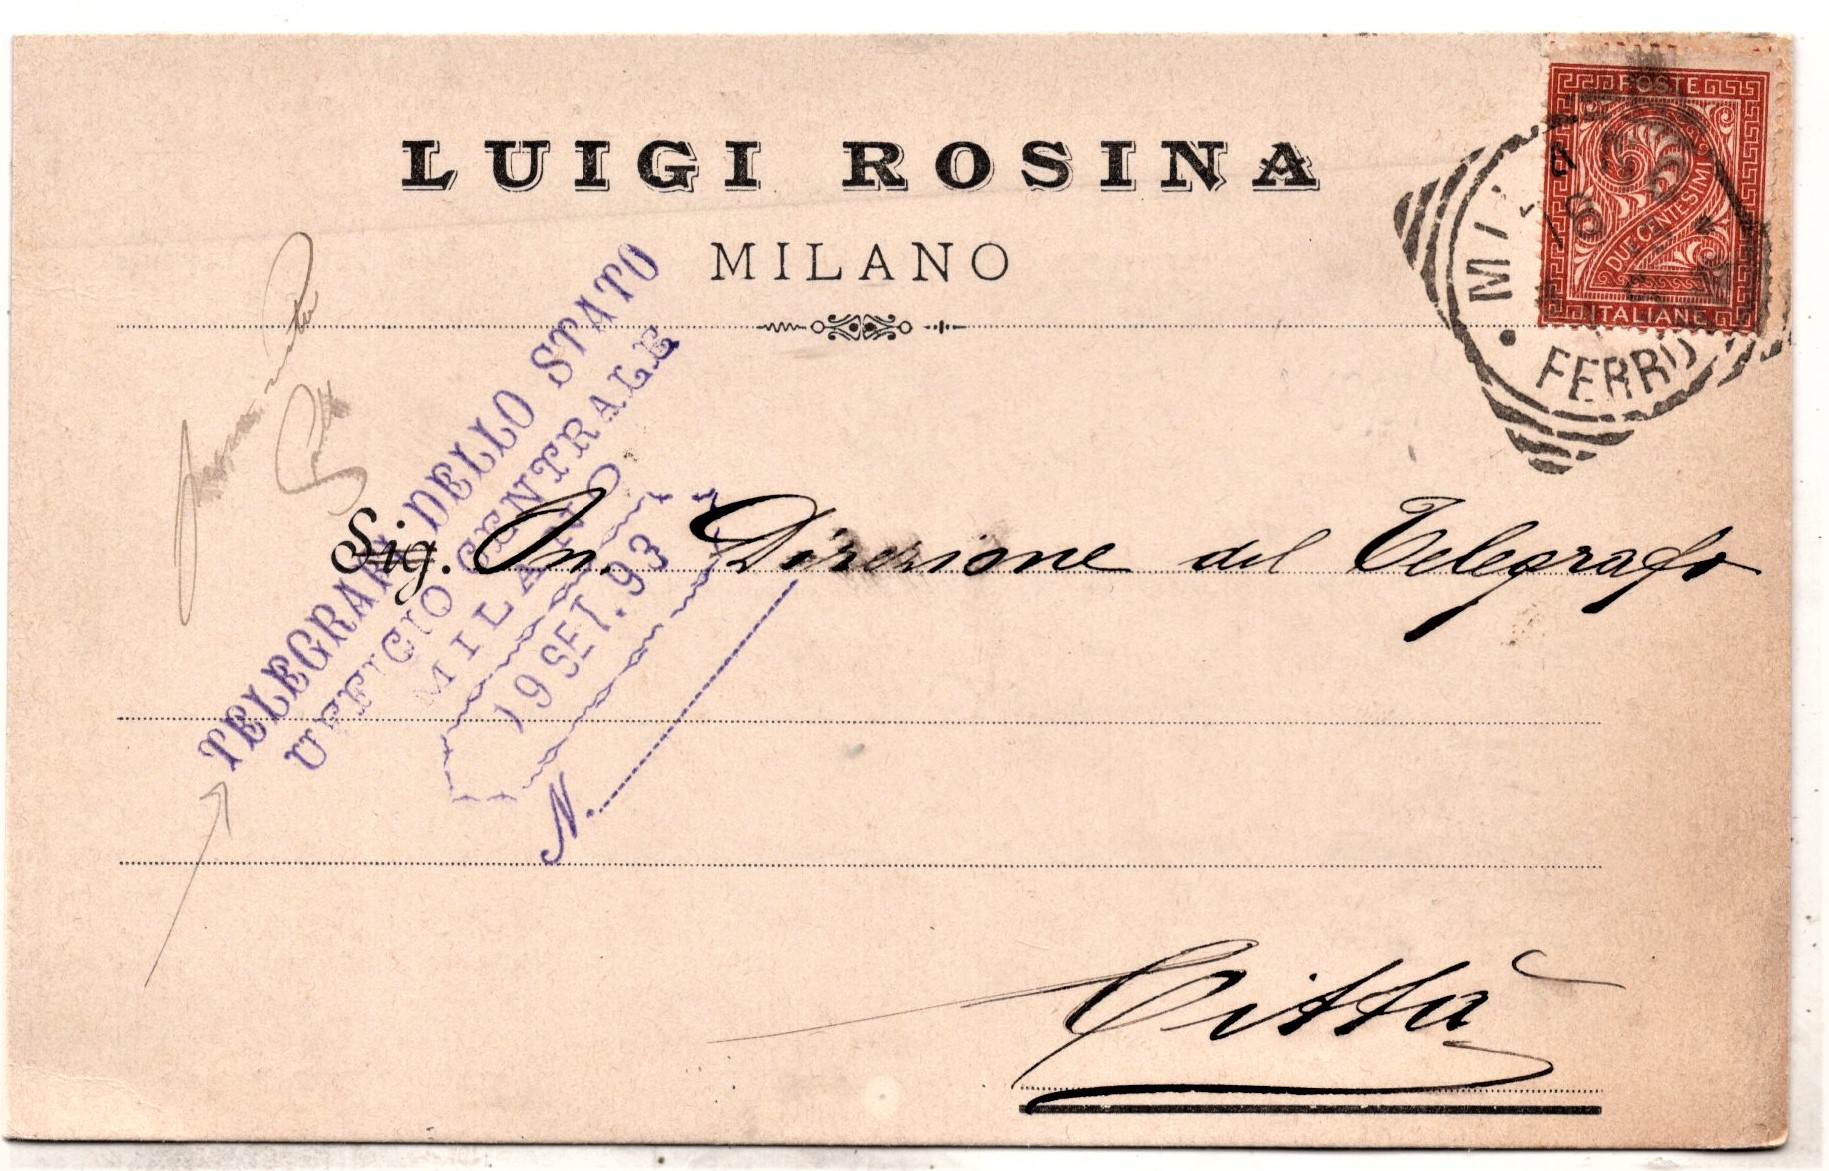 LUIGI ROSINA
MILANO
POSTE
DUE CENTESIMI
2
ITALIANE
FERRO
TELEGRAFI DELLO STATO
UFFICIO CENTRALE
MILANO
19 SET. 93
N.
Sig. On. Direzione del Telegrafo
Città